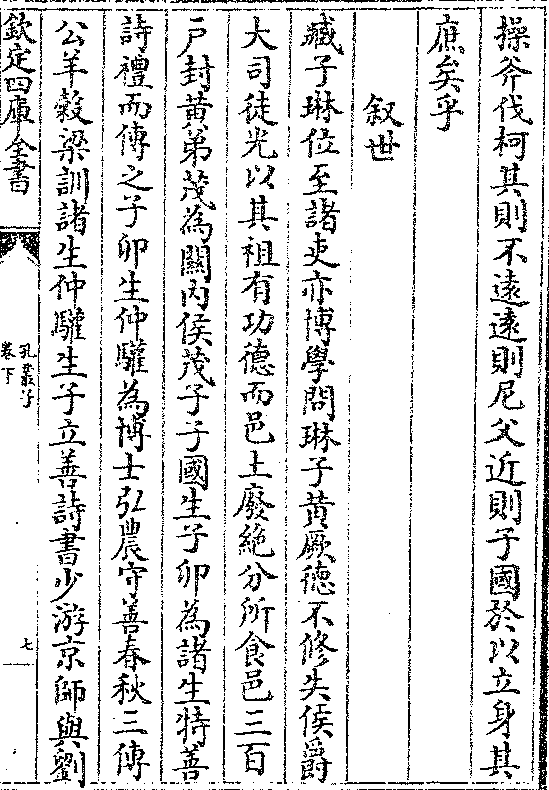 操斧伐柯其則不遠遠則尼父近則子國於以立身其
庶矣乎
叙世
臧子琳位至諸吏亦博學問琳子黄厥德不修失侯爵
大司徒光以其祖有功德而邑土廢絶分所食邑三百
户封黄弟茂為關内侯茂子子國生子卯為諸生特善
詩禮而傳之子卯生仲驩為博士弘農守善春秋三傳
公羊穀梁訓諸生仲驩生子立善詩書少游京師與劉
欽定四庫全書
孔叢子
卷下
七